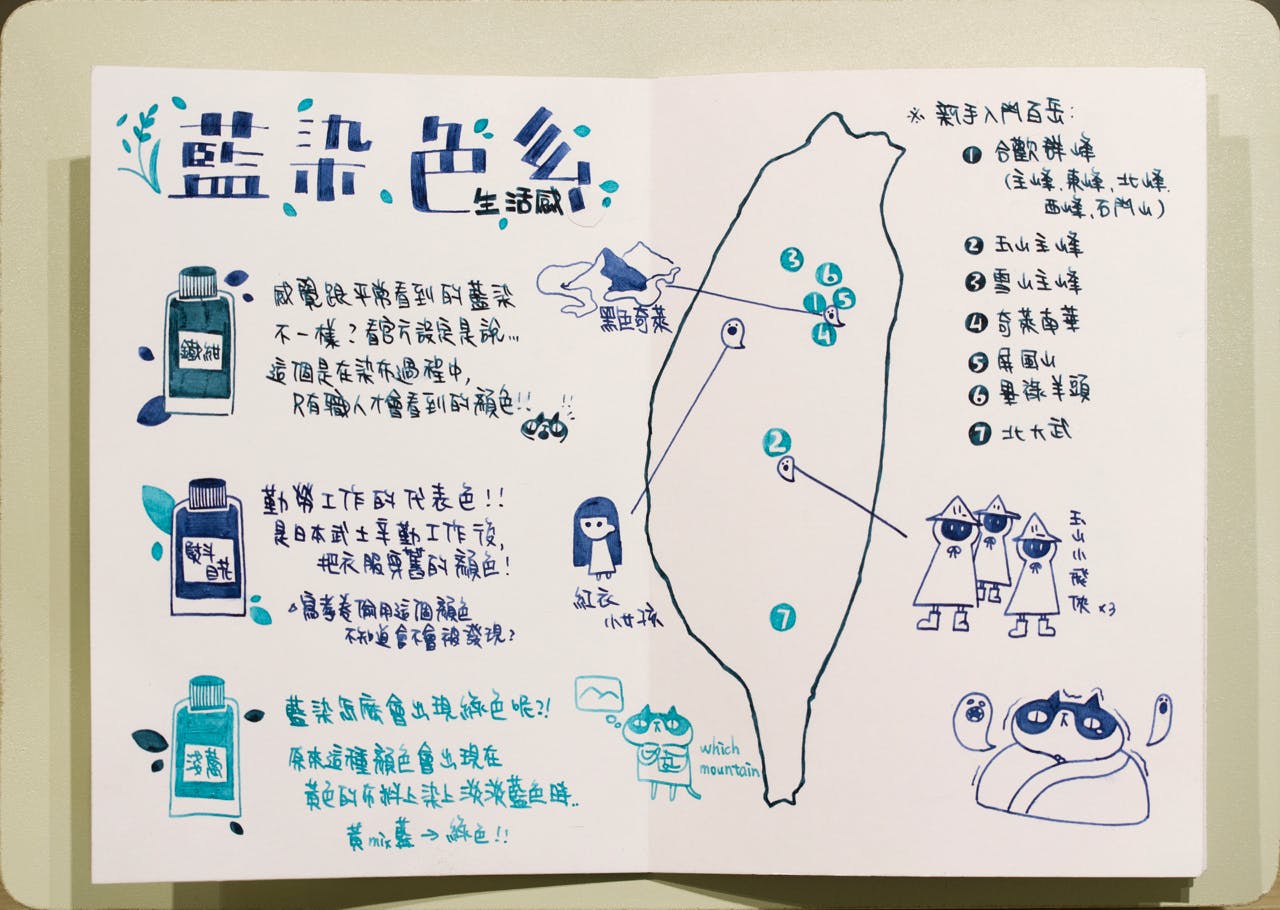 藍染色系
生活感
鐵紺
感覺跟平常看到的藍染
不一樣？看官方設定是說...
這個是在染布過程中,
只有職人才會看到的顏色!!
!!
熨斗
目花
勤勞工作的代表色!!
是日本武士辛勤工作後,
把衣服穿舊的顏色!
偷用這個顏色
不知道會不會被發現?
淺蔥
藍染怎麼會出現綠色呢?!
原來這種顏色會出現在
黃色的布料上染上淡淡藍色時..
黃mix藍→綠色!!
黑色奇萊
紅衣
小女孩
which
mountain
3
6
1
5
4
2
7
※ 新手入門百岳:
1 合歡群峰
(主峰、東峰、北峰、
西峰、石門山)
2 玉山主峰
3 雪山主峰
4 奇萊南華
5 屏風山
6 畢祿羊頭
7 北大武
玉山小飛俠 x3